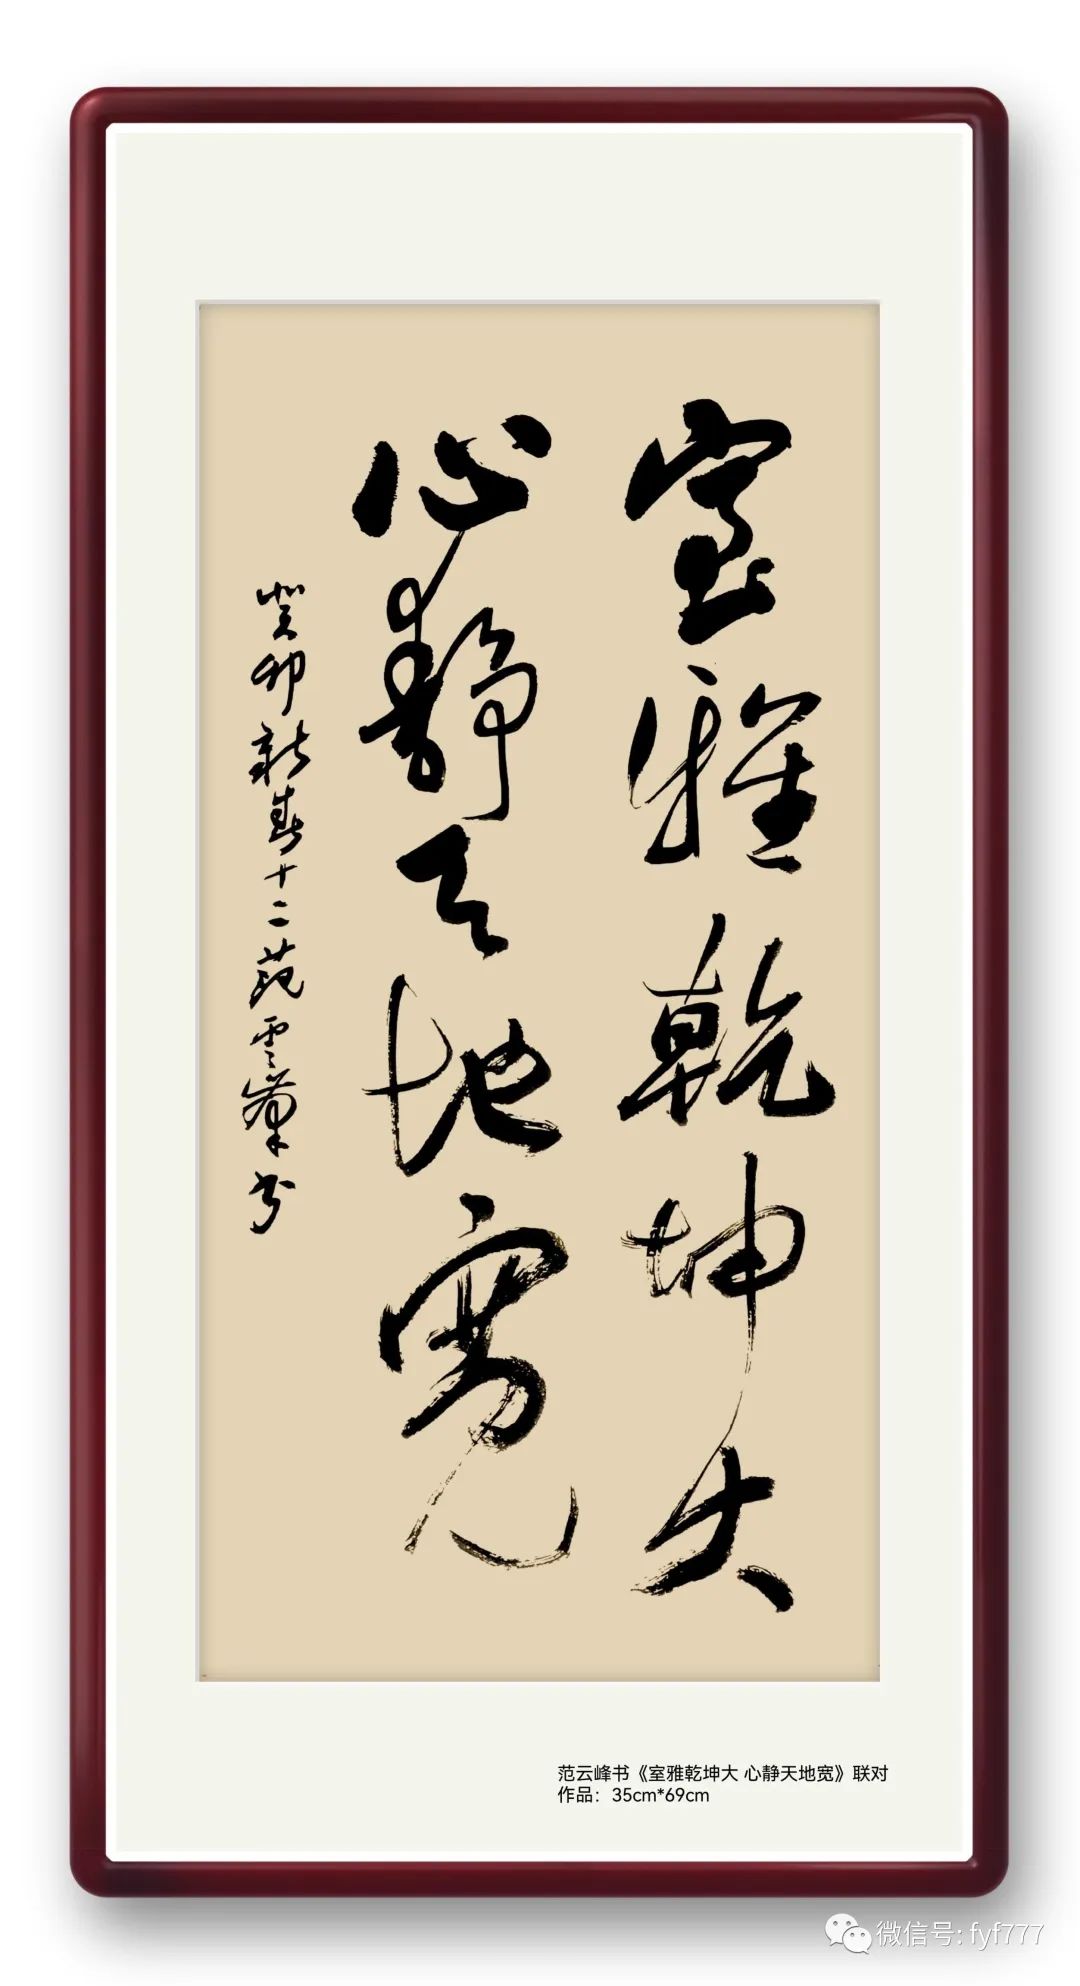 室雅乾坤大
心静天地宽
癸卯新春十二范云峰书
范云峰书《室雅乾坤大 心静天地宽》联对
作品：35cm*69cm
微信号: fyf777